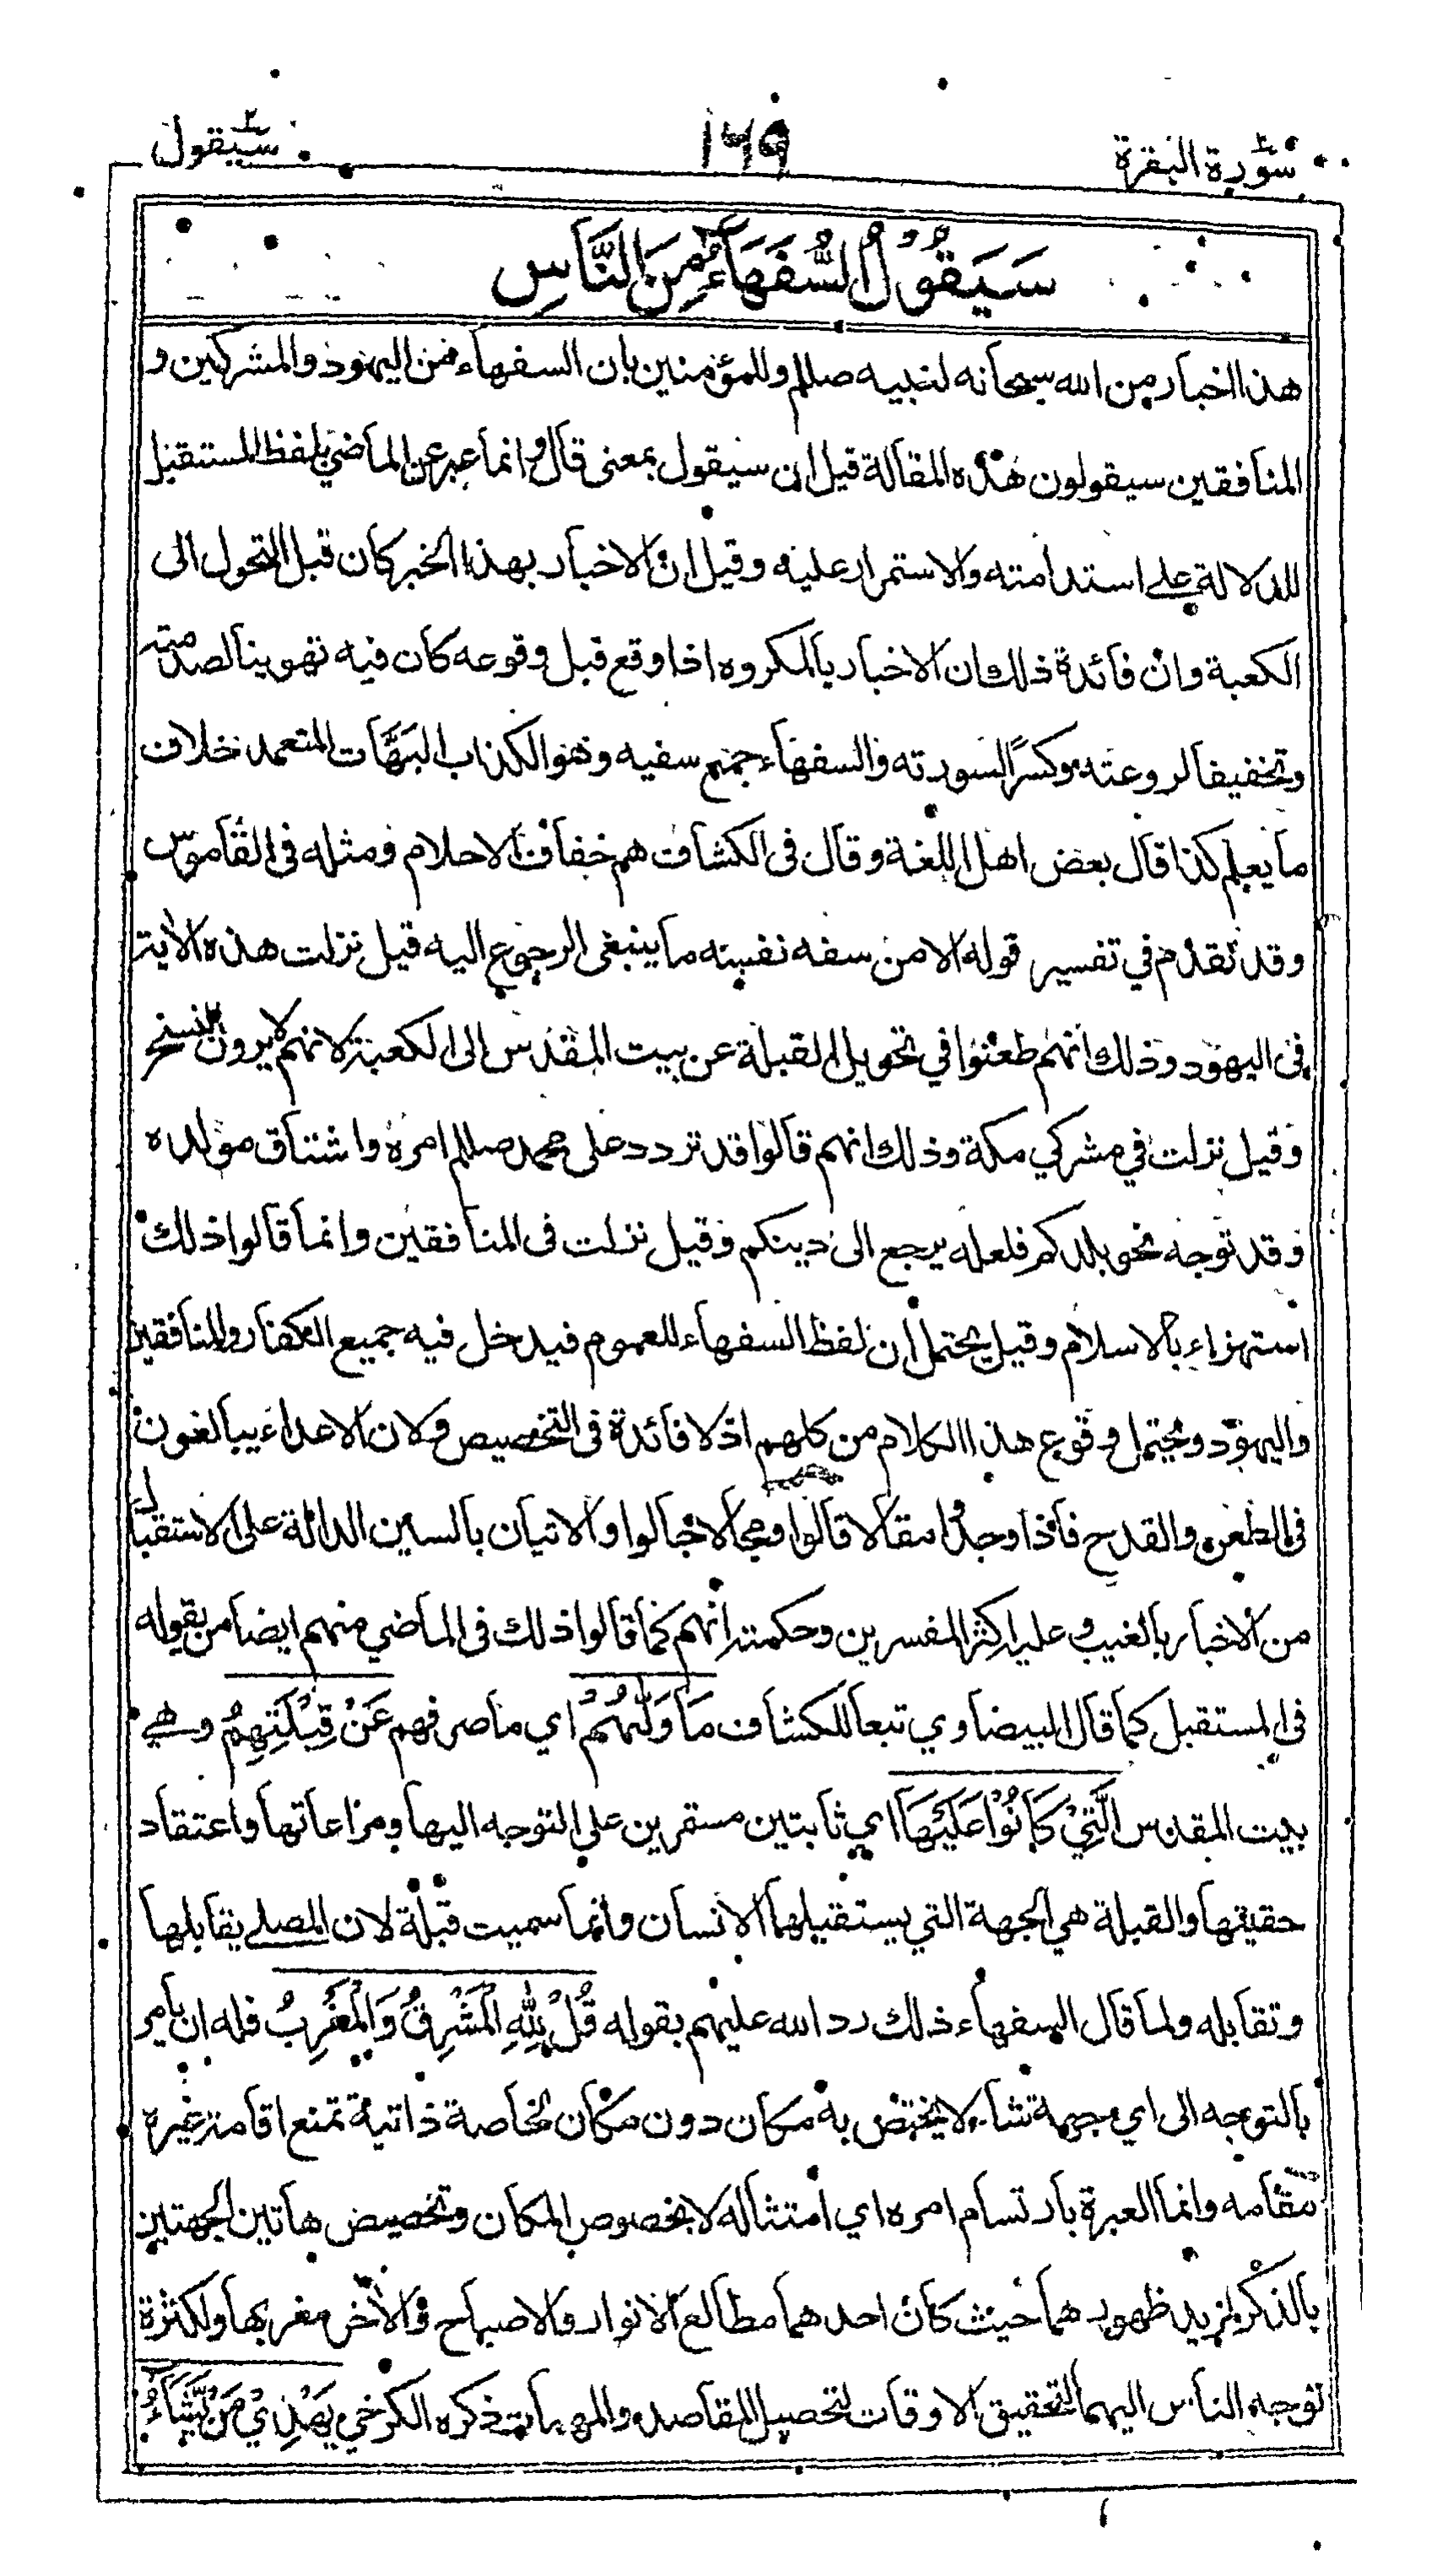 سورة البقرة ٢
١٦٩
سيقول ٢
سَيَقُوْلُ السُّفَهَآءُ مِنَ النَّاسِ
هذا اخبار من الله سبحانه لنبيه صللم وللمؤمنين بان السفهاء من اليهود والمشركين و
المنافقين سيقولون هذه المقالة قيل ان سيقول بمعنى قال وانما عبر عن الماضي بلفظ المستقبل
للدلالة على استدامته والاستمرار عليه وقيل ان الاخبار بهذا الخبر كان قبل التحول الى
الكعبة وان فائدة ذلك ان الاخبار بالمكروه اذا وقع قبل وقوعه كان فيه تهوينا لصدمته
وتخفيفا لروعته وكسرًا لسورته والسفهاء جمع سفيه وهو الكذاب البهّات المتعمد خلاف
ما يعلم كذا قال بعض اهل اللغة وقال فى الكشاف هم خفاف الاحلام ومثله فى القاموس
وقد تقدم في تفسير قوله الا من سفه نفسه ما ينبغى الرجوع اليه قيل نزلت هذه الاية
فى اليهود وذلك انهم طعنوا في تحويل القبلة عن بيت المقدس الى الكعبة لانهم لا يرون النسخ
وقيل نزلت في مشركي مكة وذلك انهم قالوا قد تردد على محمد صللم امره واشتاق مولده
وقد توجه نحو بلدكم فلعله يرجع الى دينكم وقيل نزلت فى المنافقين وانما قالوا ذلك
استهزاء بالاسلام وقيل يحتمل ان لفظ السفهاء للعموم فيدخل فيه جميع الكفار والمنافقين
واليهود ويحتمل وقوع هذا الكلام من كلهم اذ لا فائدة فى التخصيص ولان الاعداء يبالغون
فى الطعن والقدح فاذا وجدوا مقالا قالوا ومجالا جالوا والاتيان بالسين الدالة على الاستقبال
من الاخبار بالغيب وعليه اكثر المفسرين وحكمته انهم كما قالوا ذلك فى الماضي منهم ايضا من يقوله
فى المستقبل كما قال البيضاوي تبعا للكشاف مَا وَلّٰىهُمْ اي ما صرفهم عَنْ قِبْلَتِهِمُ وهي
بيت المقدس الَّتِيْ كَانُوْا عَلَيْهَا اي ثابتين مستقرين على التوجه اليها ومراعاتها واعتقاد
حقيقتها والقبلة هي الجهة التي يستقبلها الانسان وانما سميت قبلة لان المصلي يقابلها
وتقابله ولما قال السفهاء ذلك رد الله عليهم بقوله قُلْ لِلّٰهِ الْمَشْرِقُ وَالْمَغْرِبُ فله ان يأمر
بالتوجه الى اي جهة شاء لا يختص به مكان دون مكان لخاصة ذاتية تمنع اقامة غيره
مقامه وانما العبرة بارتسام امره اي امتثاله لا بخصوص المكان وتخصيص هاتين الجهتين
بالذكر لمزيد ظهورهما حيث كان احدهما مطالع الانوار والاصباح والآخر مغربها ولكثرة
توجه الناس اليهما لتحقيق الاوقات لتحصيل المقاصد والمهمات ذكره الكرخي يَهْدِيْ مَنْ يَّشَآءُ